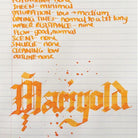 SHEEN: minimal
SATURATION: low - medium
DRYING TIME: normal to a bit long
WATER RESISTANCE: none
FLOW: good, normal
SCENT: none
SHADING: none
CLEANING: low
OUTLINE: none
Marigold